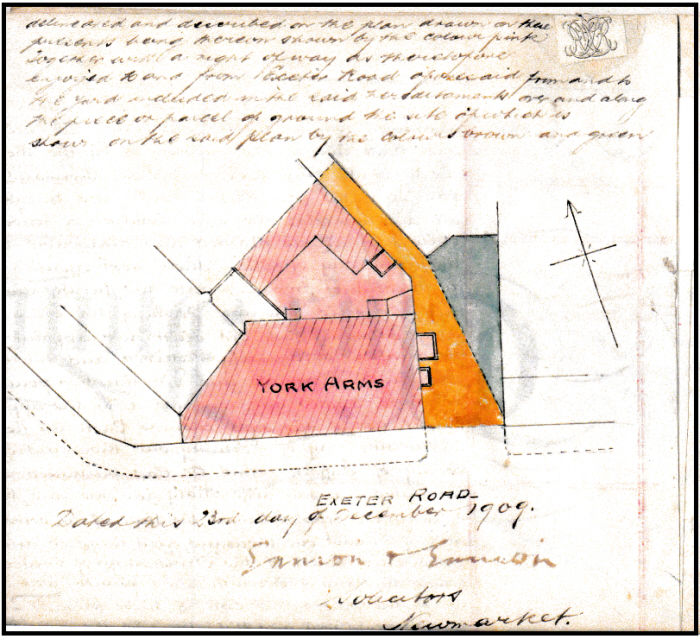 delineated and described on the plan drawn on these
presents being thereon shown by the colour pink
together with a right of way as theretofore
enjoyed to and from Exeter Road aforesaid from and to
the yard included in the said hereditaments over and along
the piece or parcel of ground the site of which is
shown on the said plan by the colours brown and green
YORK ARMS
EXETER ROAD
Dated this 23rd day of December 1909.
Ennion & Ennion
Solicitors
Newmarket.